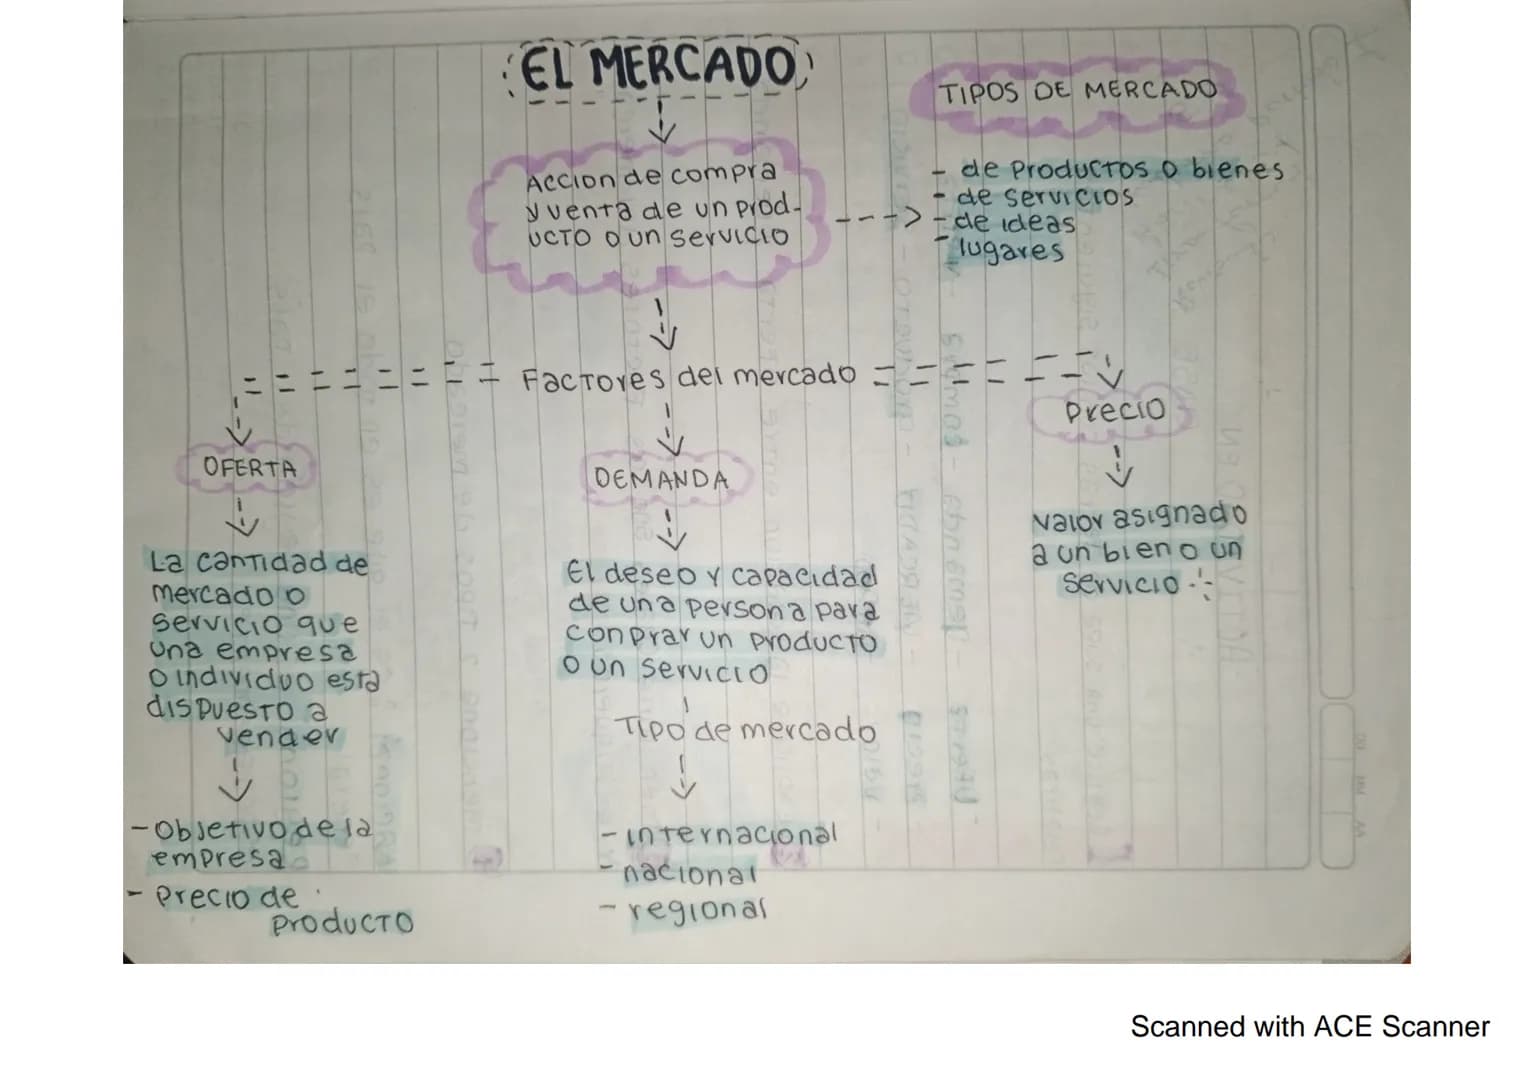 EL MERCADO
TIPOS DE MERCADO
Accion de compra
y venta de un prod-
ucto o un servicio
- de productos o bienes
- de servicios
- de ideas
- lugares
Factores del mercado
Precio
OFERTA
DEMANDA
Valor asignado
a un bien o un
servicio
La cantidad de
mercado o
servicio que
una empresa
o individuo esta
dispuesto a
vender
El deseo y capacidad
de una persona para
conprar un producto
o un servicio
Tipo de mercado
- Objetivo de la
empresa
- Precio de
producto
- internacional
- nacional
- regional
Scanned with ACE Scanner